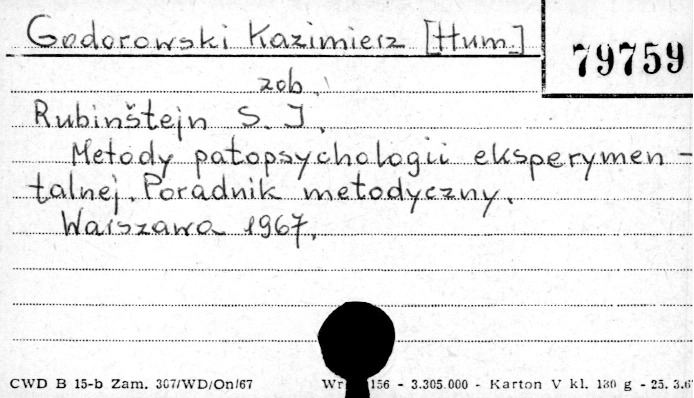 Godorowski Kazimierz [tłum.]
79759
zob.
Rubinštejn S. J.
Metody patopsychologii eksperymen-
talnej. Poradnik metodyczny.
Warszawa 1967.
CWD B 15-b Zam. 367/WD/On/67 156 - 3.305.000 - Karton V kl. 180 g - 25. 3.6